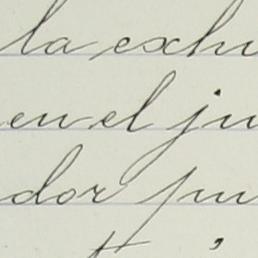 la exhu
en el ju
dor pu